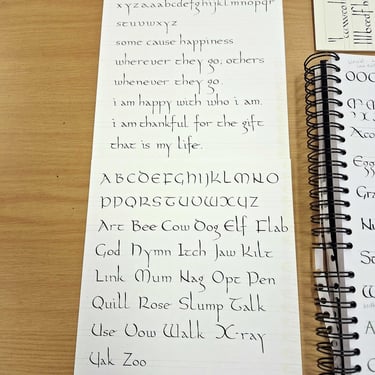 xyzaaabcdefghijklmnopqr
stuvwxyz
some cause happiness
wherever they go; others
whenever they go.
i am happy with who i am.
i am thankful for the gift
that is my life.
ABCDEFGHIJKLMNO
PQRSTUVWXYZ
Art Bee Cow Dog Elf Flab
God Hymn Itch Jaw Kilt
Link Mum Nag Opt Pen
Quill Rose Slump Talk
Use Vow Walk X-ray
Yak Zoo